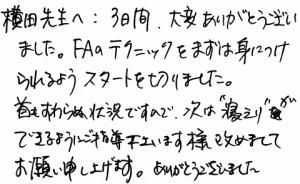 横田先生へ：3日間、大変ありがとうござい
ました。FAのテクニックをまずは身につけ
られるようスタートを切りました。
首もすわらぬ状況ですので、次は"寝返り"が
できるようにご指導下さいます様改めまして
お願い申し上げます。ありがとうございました